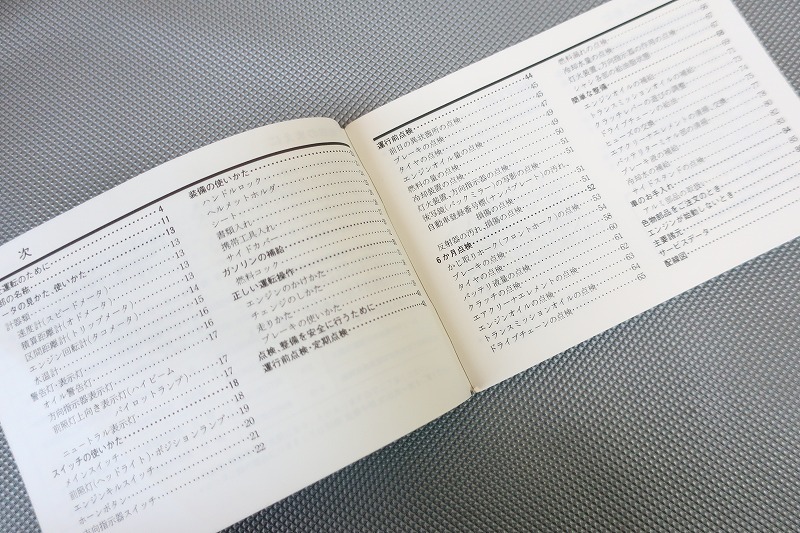 次
運転のために 4
部の名称 11
ータの見かた、使いかた 13
計器類 13
速度計(スピードメータ) 13
積算距離計(オドメータ) 13
区間距離計(トリップメータ) 14
エンジン回転計(タコメータ) 15
水温計 16
警告灯・表示灯
オイル警告灯 17
方向指示器表示灯
前照灯上向き表示灯(ハイビーム
パイロットランプ) 17
ニュートラル表示灯 18
スイッチの使いかた 18
メインスイッチ
前照灯(ヘッドライト)・ポジションランプ 19
エンジンキルスイッチ 20
ホーンボタン 21
方向指示器スイッチ 22
装備の使いかた
ハンドルロック
ヘルメットホルダ
シート
書類入れ
携帯工具入れ
サイドカバー
ガソリンの補給
燃料コック
正しい運転操作
エンジンのかけかた
チェンジのしかた
走りかた
ブレーキの使いかた
点検、整備を安全に行うために
運行前点検・定期点検
運行前点検 44
前日の異状箇所の点検 45
ブレーキの点検 45
タイヤの点検 47
エンジンオイル量の点検 49
燃料の量の点検 50
冷却装置の点検 51
灯火装置、方向指示器の点検 51
後写鏡(バックミラー)の写影の点検 51
自動車登録番号標(ナンバプレート)の汚れ、
損傷の点検 51
反射器の汚れ、損傷の点検 52
6か月点検 53
かじ取りホーク(フロントホーク)の点検 54
ブレーキの点検 58
タイヤの点検 60
バッテリ液量の点検 61
クラッチの点検 62
エアクリーナエレメントの点検 64
エンジンオイルの点検 64
トランスミッションオイルの点検 65
ドライブチェーンの点検
燃料漏れの点検 66
冷却水量の点検 67
灯火装置、方向指示器の作用の点検 67
シャシ各部の給油脂状態 68
簡単な整備
エンジンオイルの補給
トランスミッションオイルの補給
クラッチレバーの遊びの調整
ドライブチェーンの給油
エアクリーナエレメントの清掃、交換
バッテリターミナル部の清掃
ヒューズの交換
冷却水の補給
点火プラグの点検
車のお手入れ
色物部品をご注文のとき
エンジンが始動しないとき
主要諸元
サービスデータ
配線図